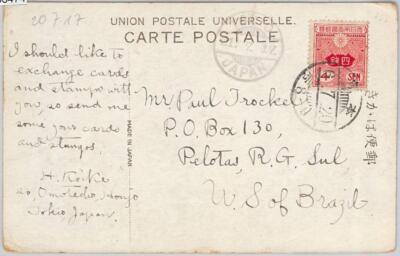 20 7 17
UNION POSTALE UNIVERSELLE.
CARTE POSTALE
JAPAN
SEN
I should like to
exchange cards
and stamps with
you, so send me
some your cards
and stamps
H. Koike
20, Omotecho, Honjo
Tokio, Japan.
MADE IN JAPAN
Mr. Paul Trockel
P.O. Box 130,
Pelotas, R.G. Sul
U.S of Brazil
きかは便郵